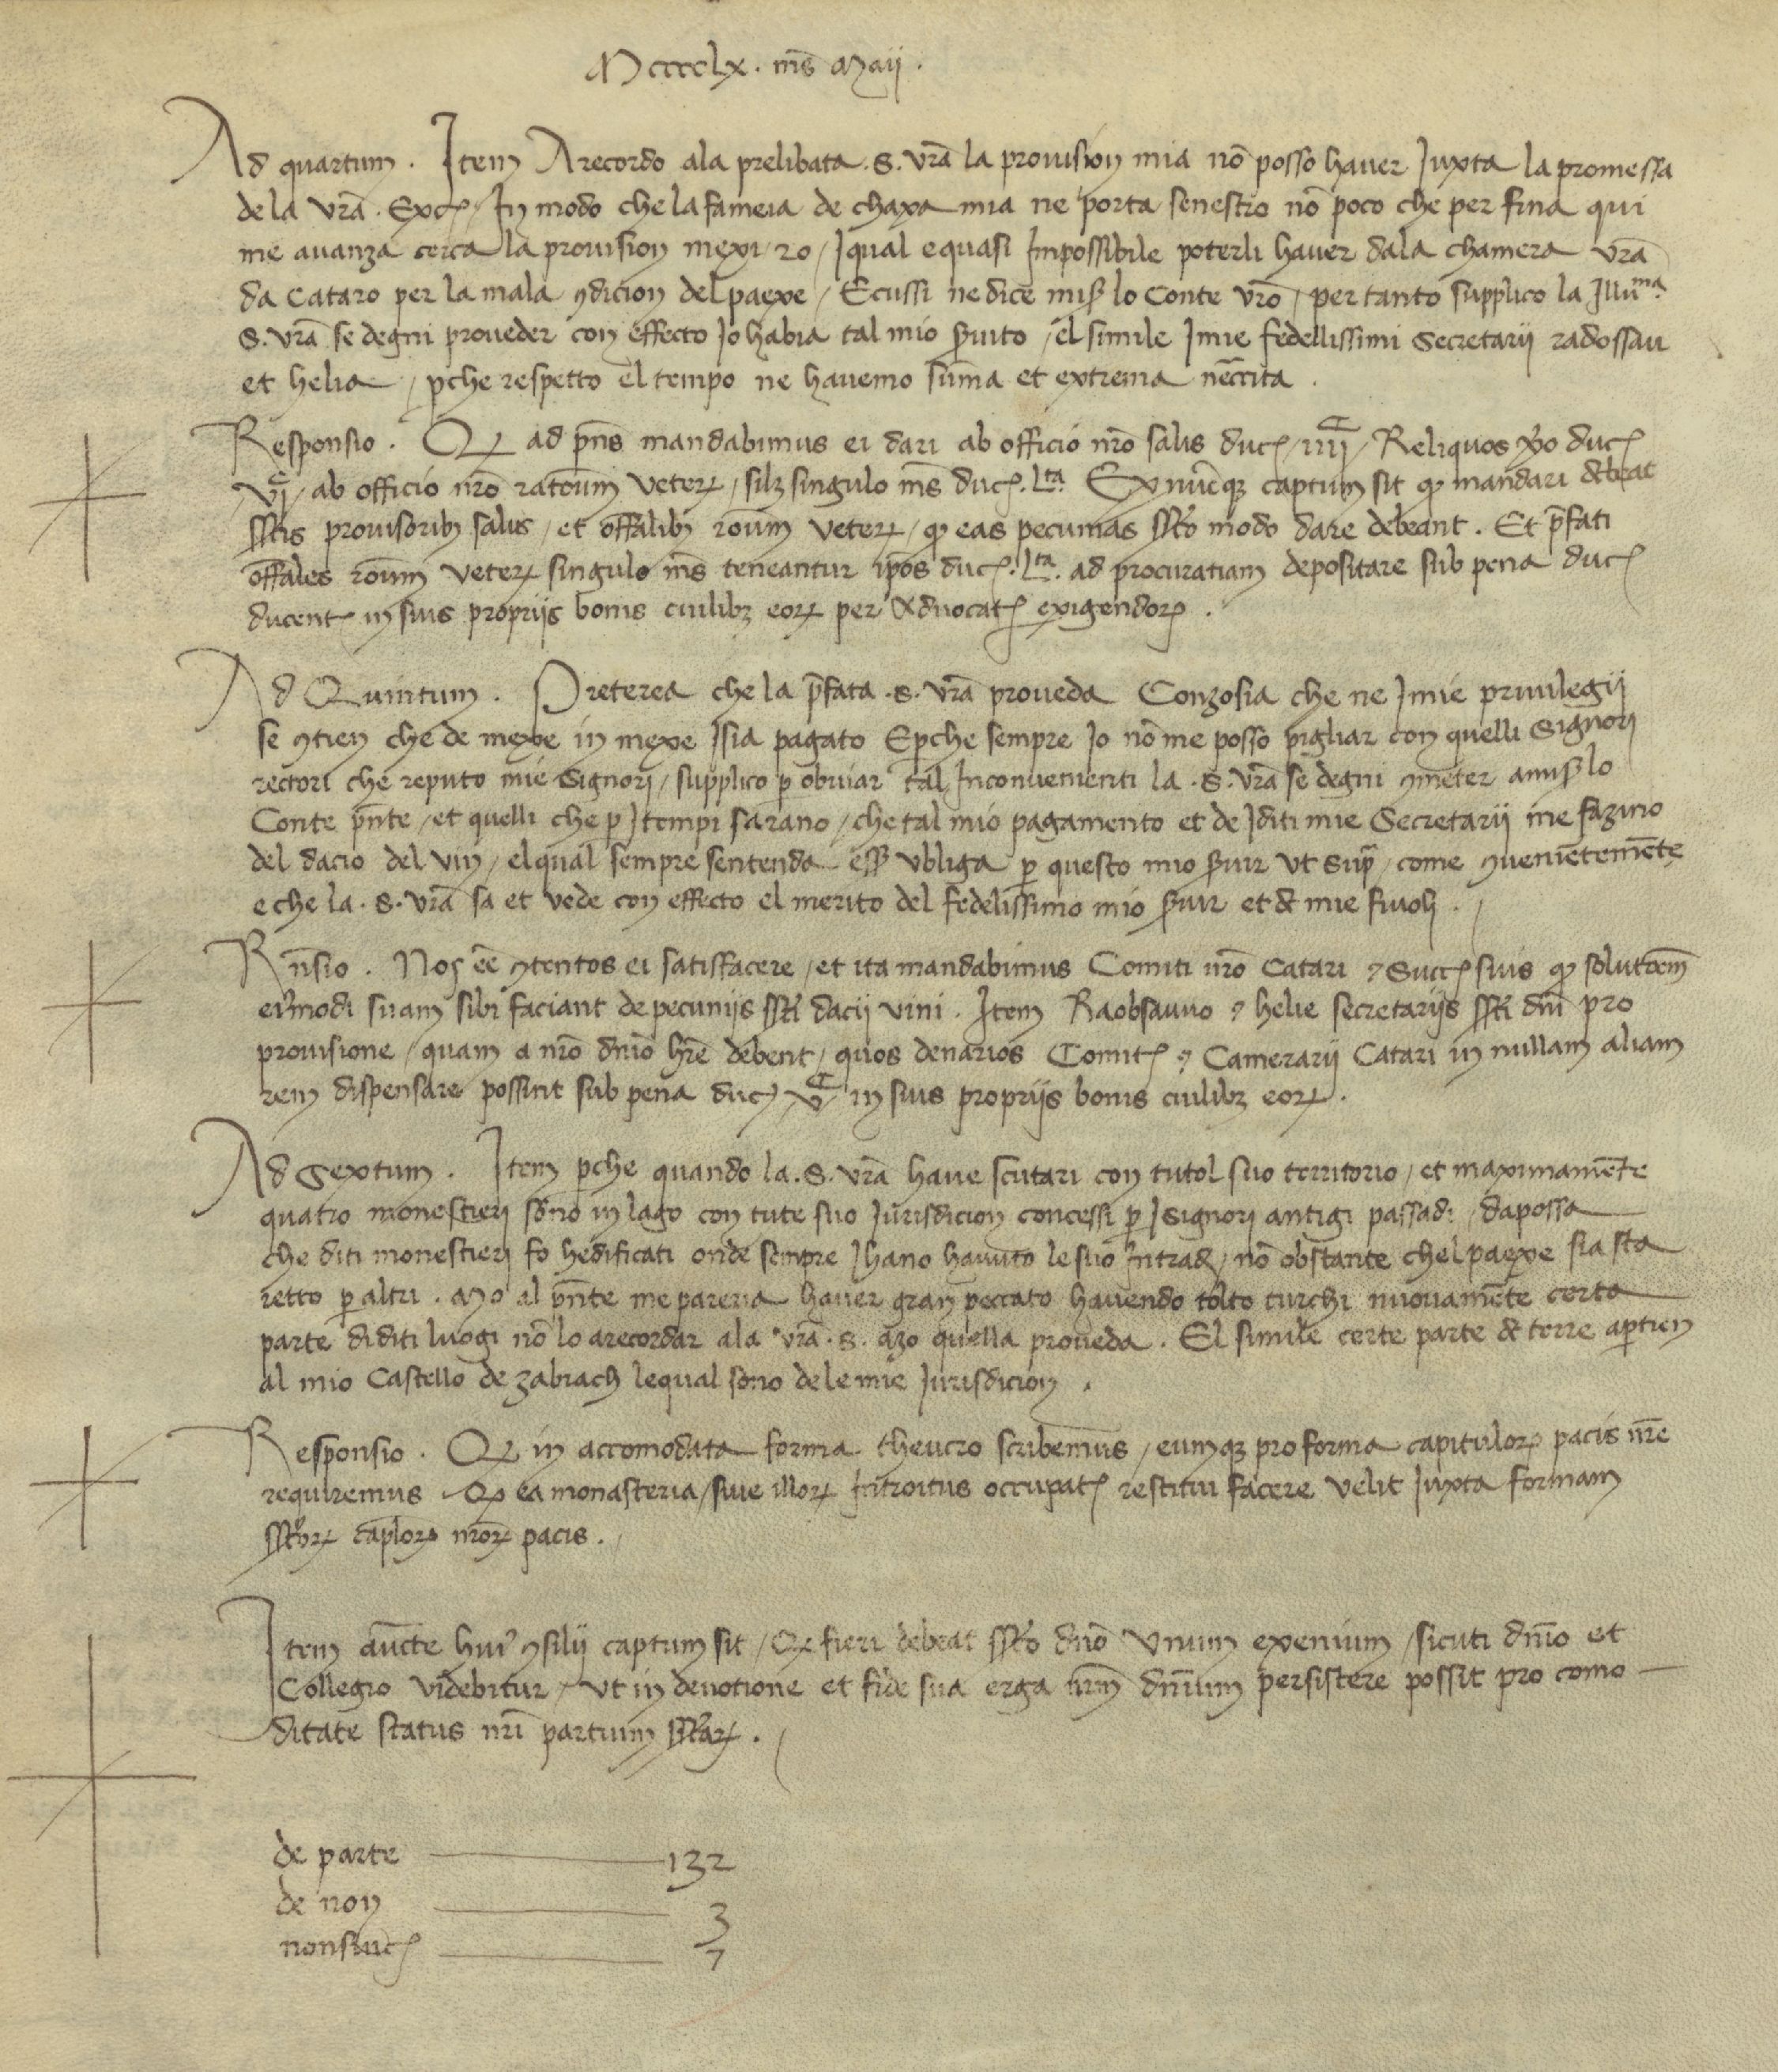 Mcccclx. mēs Maij.
Ad quartum. Item Arecordo ala prelibata .S. vrā la provision mia nō posso haver Juxta la promessa
de la vrā. Exc. / In modo che la fameia de chaxa mia ne porta senestro nō poco che per fina qui
me avanza cerca la provision mexi / 20 / Iqual e quasi Impossibile poterli haver dala chamera vrā
da Cataro per la mala ꝯdicion del paexe / E cussi ne dice mis̄ lo Conte vrō / per tanto supplico la Illuma.
S. vrā se degni proveder con effecto Io habia tal mio s̄vito / el simile I mie fedellissimi Secretarij radossau
et helia / ꝑche respetto el tempo ne havemo sum̄a et extrema nēccita.
Responsio. Ꝙ ad p̄ns mandabimus ei dari ab officio nrō salis duc̄ / iiijC / Reliquos v̓o duc̄
vjC / ab officio nrō ratōum Veterꝝ / silꝫ singulo mēs duc̄. Lta. Ex nūcqꝫ captum sit ꝙ mandari debeat
sstis provisoribꝫ salis / et offālibꝫ rōum Veterꝝ / ꝙ eas pecunias sst̓o modo dare debeant. Et p̄fati
offāles rōum Veterꝝ singulo mēs teneantur ip̄os duc̄. Lta. ad procuratiam depositare sub pena duc̄
ducent̄ in suis proprijs bonis civilibꝫ eorꝝ per Advocat̄ exigendorꝝ.
Ad Quintum. Preterea che la p̄fata .S. vrā proveda Conzosia che ne I mie privilegij
se ꝯtien che de mexe in mexe Isia pagato E ꝑche sempre Io nō me posso pigliar con quelli Signori
rectori che reputo mie Signori / supplico ꝑ obviar tal Inconvenienti la .S. vrā se degni ꝯmeter a mis̄ lo
Conte p̄nte / et quelli che ꝑ I tempi sarano / che tal mio pagamento et de I diti mie Secretarij me fazino
del dacio del vin / el qual sempre sentenda ess̄ ubliga ꝑ questo mio s̄vir ut sup̄ / come ꝯvenientemēte
e che la .S. vrā sa et vede con effecto el merito del fedelissimo mio s̄vir et de mie fiuoli.
Rn̄sio. Nos eē ꝯtentos ei satisfacere / et ita mandabimus Comiti nrō Catari ⁊ Succ̄ suis ꝙ solutōem
eiꝰmodi suam sibi faciant de pecunijs ssti dacij vini. Item Radossavo ⁊ helie secretarijs ssti dn̄i pro
provisione / quam a nrō dn̄io hrē debent / quos denarios Comit̄ ⁊ Camerarij Catari in nullam aliam
rem dispensare possint sub pena duc̄ vC in suis proprijs bonis civilibꝫ eorꝝ.
Ad Sextum. Item ꝑche quando la .S. vrā have scutari con tutol suo territorio / et maximamēte
quatro monestieri sono in lago con tute suo Jurisdicion concessi ꝑ I signori antigi passadi / dapossa
che diti monestieri fo hedificati onde sempre I hano havuto le suo Intrade / nō obstante chel paexe sia sta
retto ꝑ altri. Mo al p̄nte me pareria haver gran peccato havendo tolto turchi nuovamēte certa
parte di diti luogi nō lo arecordar ala vrā .S. azo quella proveda. El simile certe parte de terre aꝑtien
al mio Castello de zabiach lequal sono dele mie Jurisdicion.
Responsio. Ꝙ in accomodata forma theucro scribemus / eumqꝫ pro forma capitulorꝝ pacis nrē
requiremus Ꝙ ea monasteria / sive illorꝝ Introitus occupat̄ restitui facere velit Juxta formam
sst̓orꝝ cap̄lorꝝ nrorꝝ pacis.
Item auc̄te huiꝰ ꝯsilij captum sit / Ꝙ fieri debeat sst̓o dn̄o Unum exenium / sicuti dn̄io et
Collegio videbitur / Ut in devotione et fide sua erga nrm̄ dn̄ium persistere possit pro como
ditate status nrī partium sst̓arꝝ.
de parte 132
de non 3
nonsinc̄ 7